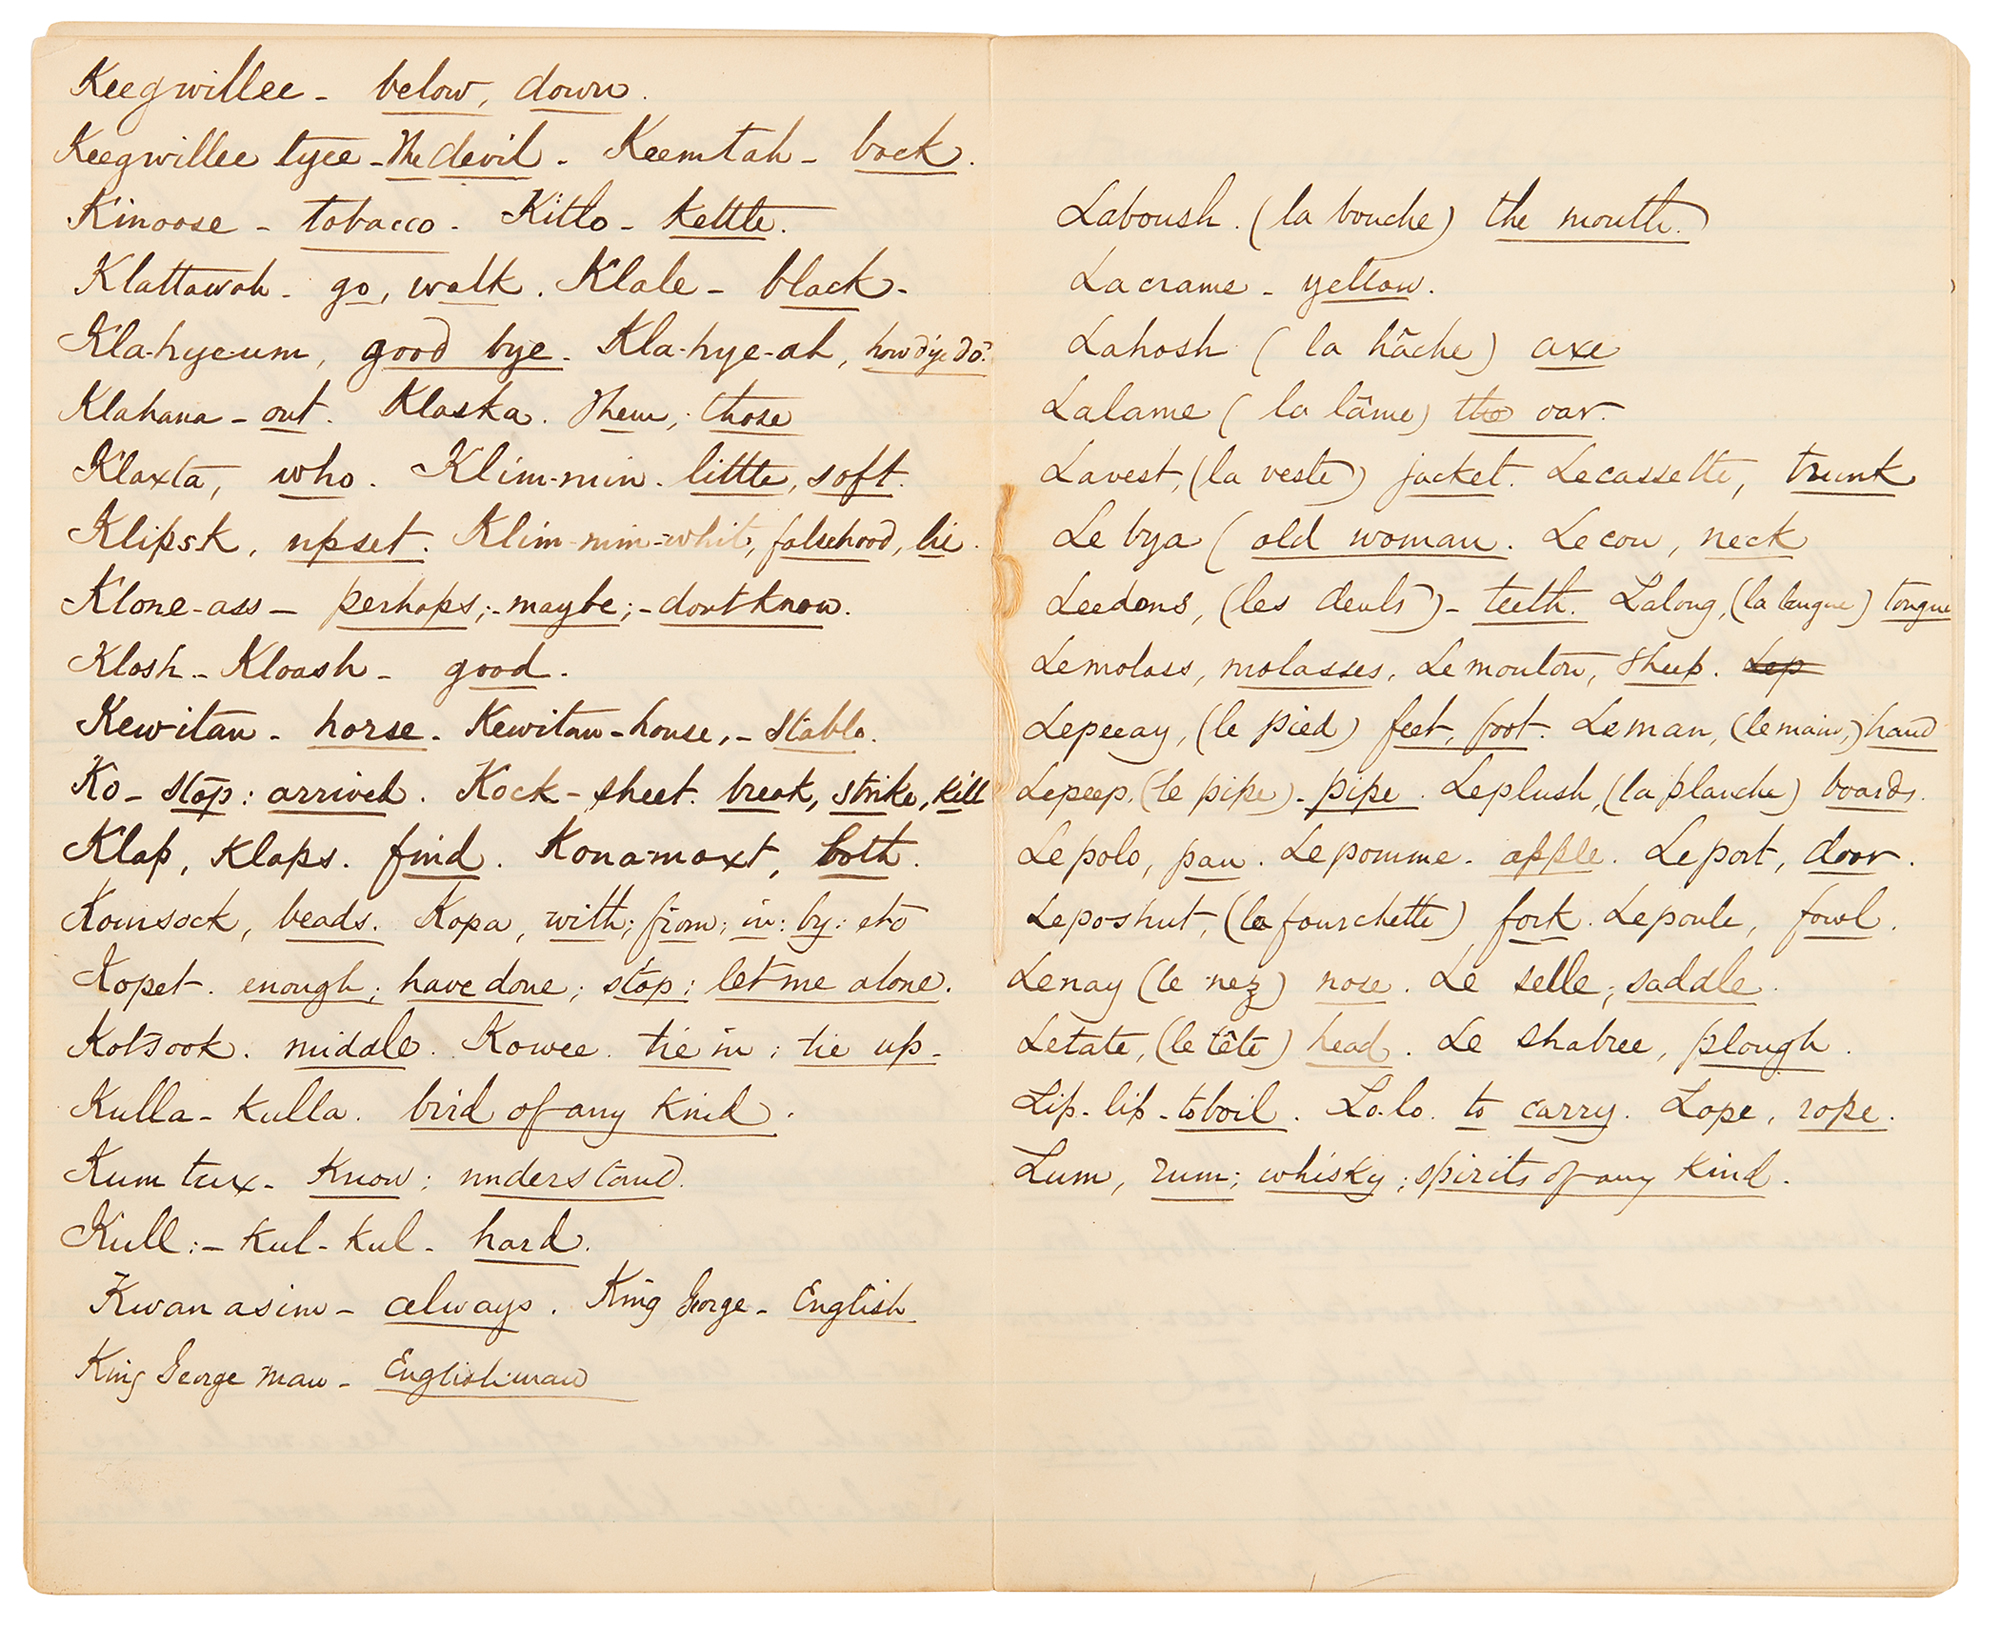 Keegwillee - below, down.
Keegwillee tyee - The devil - Keemtah - back.
Kinoose - tobacco. Kitlo - Kettle.
Klattawah - go, walk. Klale - black -
Kla-hye-um, good bye. Kla-hye-ah, how d'ye do?
Klahana - out. Klaska. Them, those
Klaxta, who. Klim-min. little, soft.
Klipsk, upset. Klim-min-whit, falsehood, lie.
Klone-ass - perhaps; - maybe; - dont know.
Klosh - Kloash - good.
Kewitan - horse. Kewitan-house, - Stable.
Ko - stop: arrived. Kock-sheet. break, strike, kill
Klap, Klaps. find. Konamoxt, both.
Komsock, beads. Kopa, with; from; in: by: etc
Kopet. enough; have done; stop; let me alone.
Kotsook. middle. Kowee. tie in; tie up -
Kulla-kulla. bird of any kind.
Kum tux - Know; understand.
Kull: - kul-kul - hard.
Kwanasim - always. King George - English
King George man - Englishman
Laboush. (la bouche) the mouth.
Lacrame - yellow.
Lahosh (la hâche) axe
Lalame (la lâme) the oar.
Lavest, (la veste) jacket. Lecassette, trunk
Le bya ( old woman. Lecou, neck
Leedons, (les dents) - teeth. Lalong, (la langue) tongue
Lemolass, molasses, Lemouton, Sheep. Lep
Lepeeay, (le pied) feet, foot. Leman, (le main,) hand
Lepeep, (le pipe) - pipe. Leplush, (la planche) boards.
Lepolo, pan. Lepomme - apple. Leport, door.
Leposhut, (la fourchette) fork. Lepoule, fowl.
Lenay (le nez) nose. Le selle; saddle.
Letate, (le tête) head. Le shabree, plough.
Lip-lip - to boil. Lo-lo. to carry. Lope, rope.
Lum, rum; whisky; spirits of any kind.